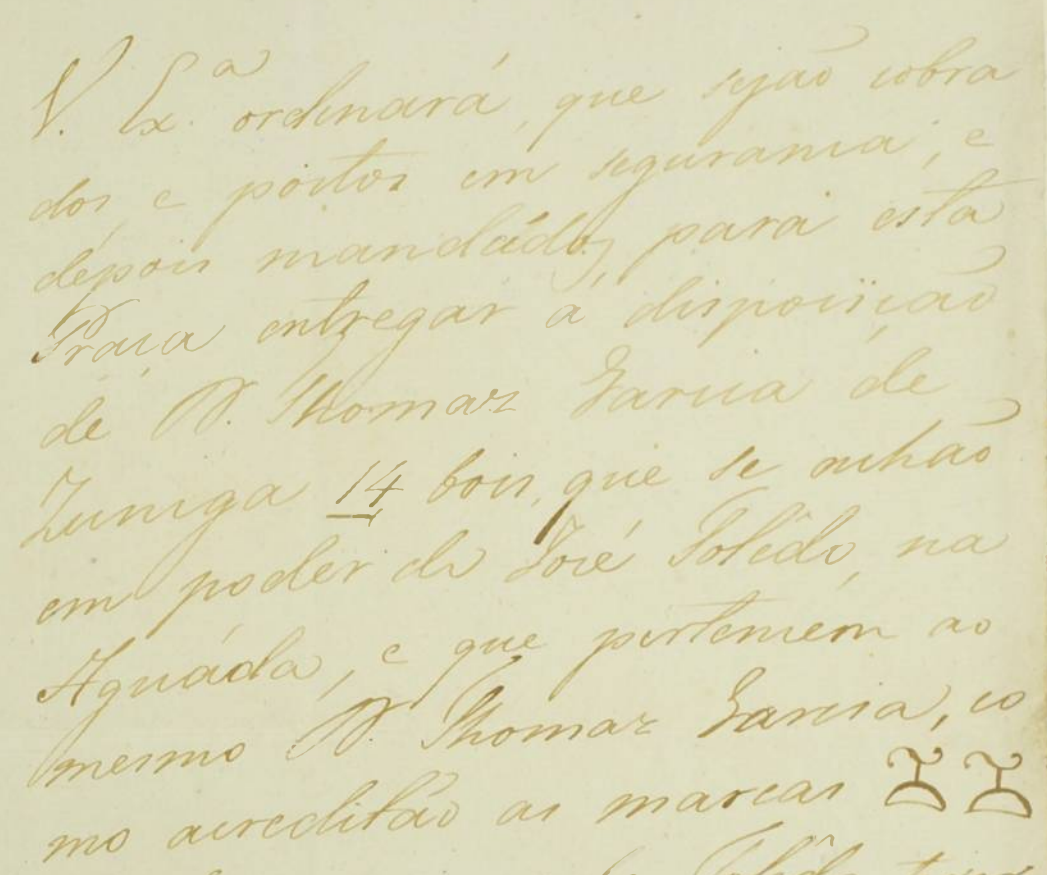 V. Ex.ª ordinará, que sejão cobra
dos e póstos em segurancia, e
depois mandádos, para esta
Praça entregar á dispozição
de D. Thomaz Garcia de
Zuniga 14 bois, que se achão
em poder de José Tolêdo, na
Aguáda, e que pertencem ao
mesmo D. Thomaz Garcia, co
mo acreditão as marcas